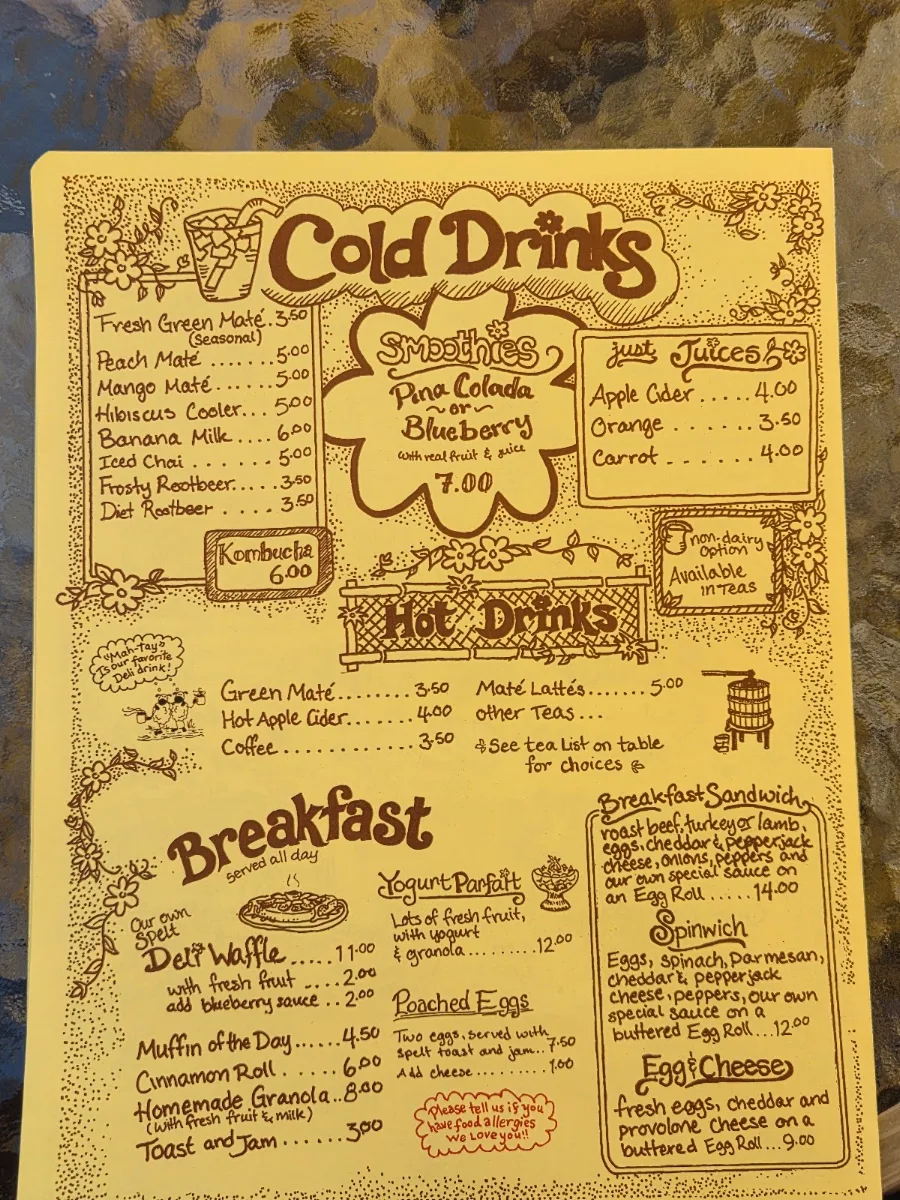 Cold Drinks
Fresh Green Maté . 3.50
(seasonal)
Peach Maté ....... 5.00
Mango Maté ...... 5.00
Hibiscus Cooler... 5.00
Banana Milk .... 6.00
Iced Chai ...... 5.00
Frosty Rootbeer..... 3.50
Diet Rootbeer ..... 3.50
Kombucha
6.00
Smoothies
Pina Colada
~or~
Blueberry
with real fruit & juice
7.00
just Juices
Apple Cider ..... 4.00
Orange ....... 3.50
Carrot ....... 4.00
non-dairy
option
Available
in Teas
Hot Drinks
"Mah-Tay"
Is our favorite
Deli drink!
Green Maté........ 3.50
Hot Apple Cider....... 4.00
Coffee ............ 3.50
Maté Lattés....... 5.00
other Teas ...
See tea List on table
for choices
Breakfast
served all day
Our own
Spelt
Deli Waffle ..... 11.00
with fresh fruit .... 2.00
add blueberry sauce .. 2.00
Muffin of the Day...... 4.50
Cinnamon Roll ...... 6.00
Homemade Granola.. 8.00
(with fresh fruit & milk)
Toast and Jam ...... 3.00
Yogurt Parfait
Lots of fresh fruit,
with yogurt
& granola ......... 12.00
Poached Eggs
Two eggs, served with
spelt toast and jam.. 7.50
Add cheese .......... 1.00
Please tell us if you
have food allergies
We Love you!!
Breakfast Sandwich
roast beef, turkey or lamb,
eggs, cheddar & pepperjack
cheese, onions, peppers and
our own special sauce on
an Egg Roll ..... 14.00
Spinwich
Eggs, spinach, Parmesan,
cheddar & pepperjack
cheese, peppers, our own
special sauce on a
buttered Egg Roll... 12.00
Egg & Cheese
fresh eggs, cheddar and
provolone cheese on a
buttered Egg Roll... 9.00